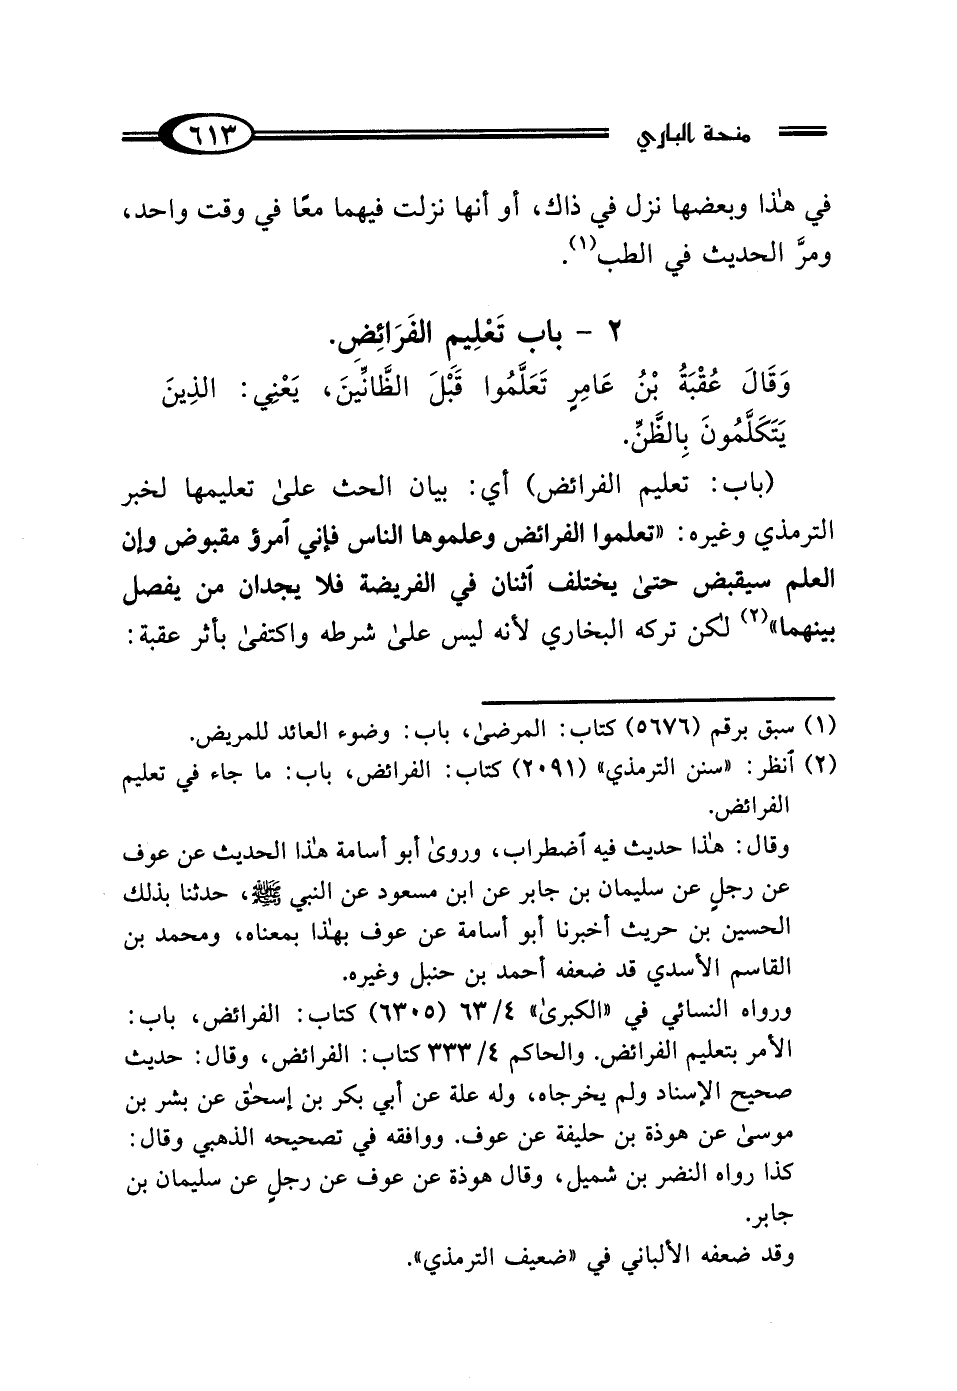 منحة الباري ٦١٣
في هٰذا وبعضها نزل في ذاك، أو أنها نزلت فيهما معًا في وقت واحد،
ومرَّ الحديث في الطب(١).
٢ - باب تَعْلِيمِ الفَرَائِضِ.
وَقَالَ عُقْبَةُ بْنُ عَامِرٍ تَعَلَّمُوا قَبْلَ الظَّانِّينَ، يَعْنِي: الذِينَ
يَتَكَلَّمُونَ بِالظَّنِّ.
(باب: تعليم الفرائض) أي: بيان الحث علىٰ تعليمها لخبر
الترمذي وغيره: «تعلموا الفرائض وعلموها الناس فإني ٱمرؤ مقبوض وإن
العلم سيقبض حتىٰ يختلف ٱثنان في الفريضة فلا يجدان من يفصل
بينهما»(٢) لكن تركه البخاري لأنه ليس علىٰ شرطه واكتفىٰ بأثر عقبة:
(١) سبق برقم (٥٦٧٦) كتاب: المرضىٰ، باب: وضوء العائد للمريض.
(٢) ٱنظر: «سنن الترمذي» (٢٠٩١) كتاب: الفرائض، باب: ما جاء في تعليم
الفرائض.
وقال: هٰذا حديث فيه ٱضطراب، وروىٰ أبو أسامة هٰذا الحديث عن عوف
عن رجلٍ عن سليمان بن جابر عن ابن مسعود عن النبي ﷺ، حدثنا بذلك
الحسين بن حريث أخبرنا أبو أسامة عن عوف بهٰذا بمعناه، ومحمد بن
القاسم الأسدي قد ضعفه أحمد بن حنبل وغيره.
ورواه النسائي في «الكبرىٰ» ٤/ ٦٣ (٦٣٠٥) كتاب: الفرائض، باب:
الأمر بتعليم الفرائض. والحاكم ٤/ ٣٣٣ كتاب: الفرائض، وقال: حديث
صحيح الإسناد ولم يخرجاه، وله علة عن أبي بكر بن إسحٰق عن بشر بن
موسىٰ عن هوذة بن خليفة عن عوف. ووافقه في تصحيحه الذهبي وقال:
كذا رواه النضر بن شميل، وقال هوذة عن عوف عن رجلٍ عن سليمان بن
جابر.
وقد ضعفه الألباني في «ضعيف الترمذي».